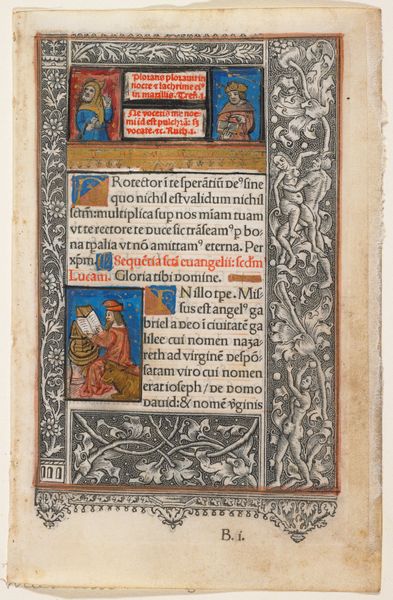 Plorans plorauit in
nocte ⁊ lachrime eiꝰ
in maxillis. Tren. i.
Ne vocetis me noe-
mi id est pulchrā: sʒ
vocate. ⁊c. Ruth. i.
PRotector ī te sperātiū deꝰ sine
quo nichil est validum nichil
sctm̄: multiplica sup nos m̄iam tuam
vt te rectore te duce sic trāseamꝰ p bo-
na tp̄alia vt nō amittamꝰ eterna. Per
xpm̄. Sequētia scti euangelii: scdm̄
Lucam. Gloria tibi domine.
INillo tp̄e. Mis-
sus est angelꝰ ga
briel a deo ī ciuitatē ga
lilee cui nomen naza
reth ad virginē despō-
satam viro cui nomen
erat ioseph / de domo
dauid: & nomē v̄ginis
B. i.